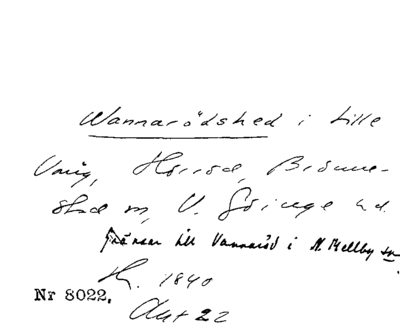 Wannarödshed i Lille
Vråg, Hörröd, Brönne-
stad sn, V. Göinge hd.
gränsar till Vannaröd i N. Mellby sn
1840
Nr 8022. Akt 22